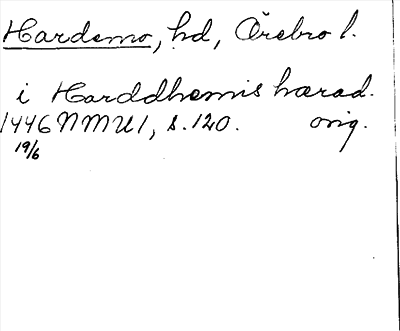 Hardemo, hd, Örebro l.
i Harddhemis hærad.
1446 NMU 1, s. 120. orig.
19/6